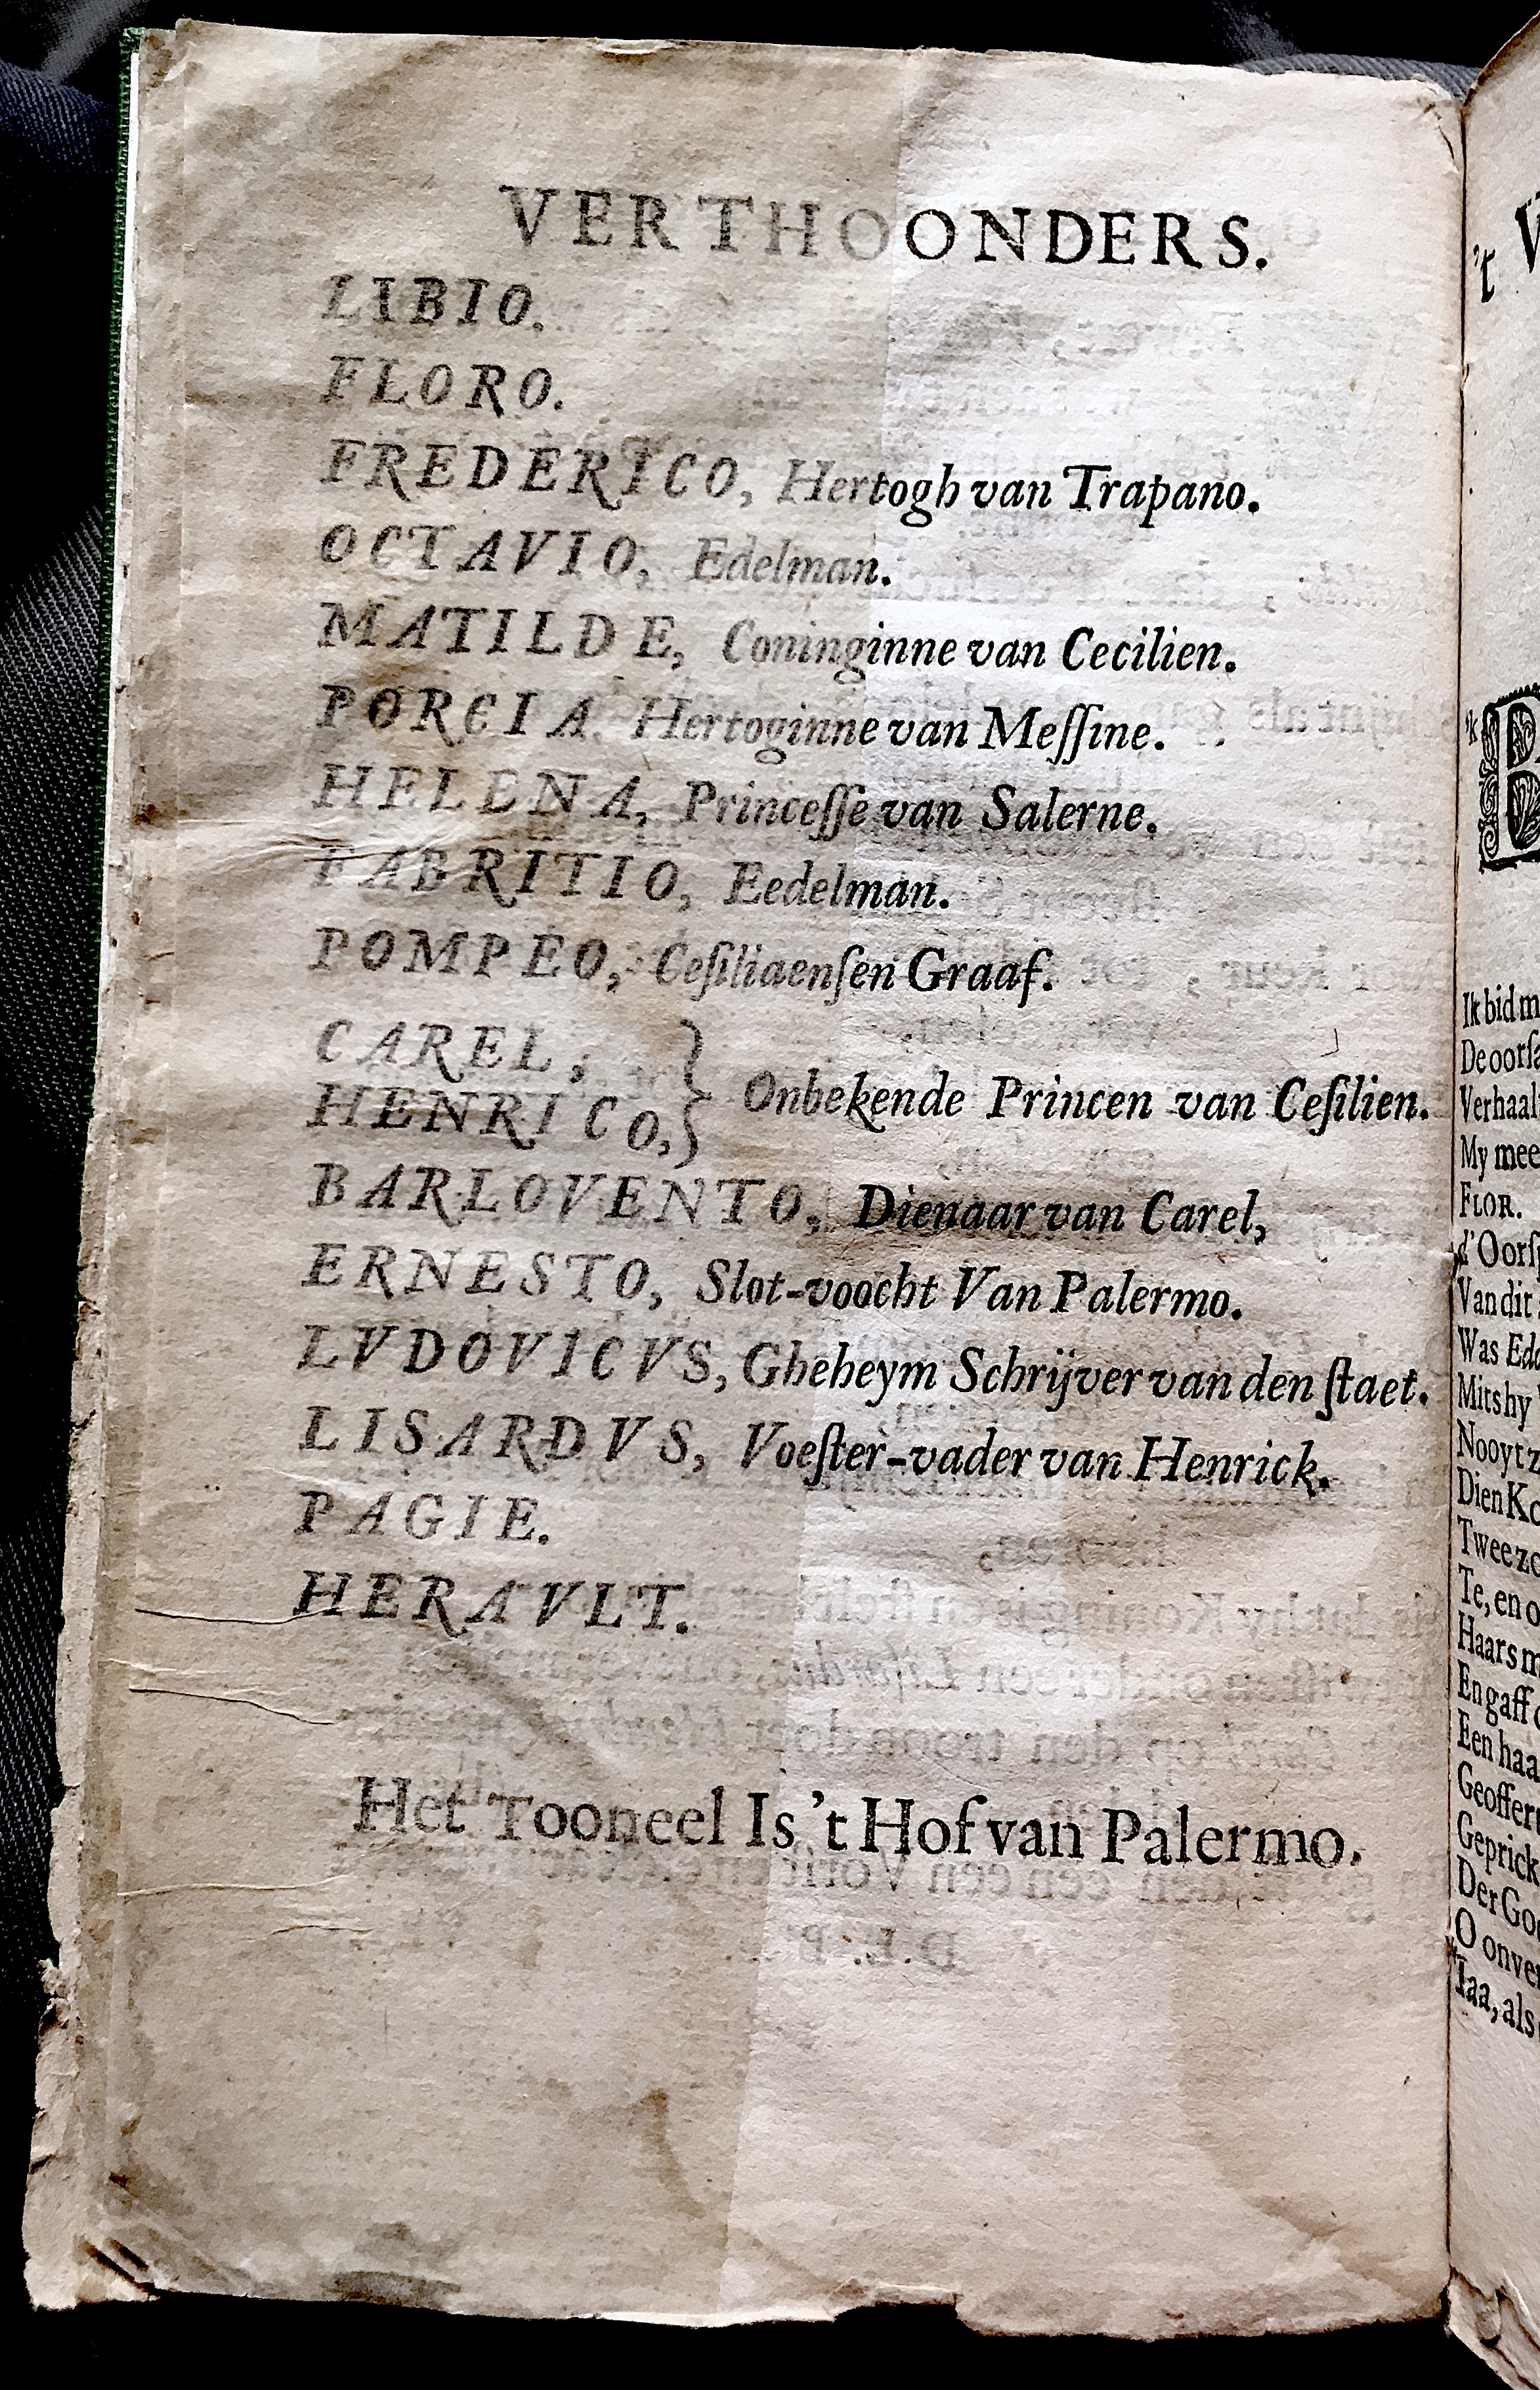 VERTHOONDERS.
LIBIO.
FLORO.
FREDERICO, Hertogh van Trapano.
OCTAVIO, Edelman.
MATILDE, Coninginne van Cecilien.
PORCIA Hertoginne van Meſſine.
HELENA, Princeſſe van Salerne.
FABRITIO, Eedelman.
POMPEO, Ceſiliaenſen Graaf.
CAREL,
HENRICO,} Onbekende Princen van Ceſilien.
BARLOVENTO, Dienaar van Carel,
ERNESTO, Slot-voocht Van Palermo.
LVDOVICVS, Gheheym Schrijver van den ſtaet.
LISARDVS, Voeſter-vader van Henrick.
PAGIE.
HERAVLT.
Het Tooneel Is 't Hof van Palermo.
't
Ik bid
De
My mee
FLOR.
Van dit
Was
Mits hy
Nooyt
Dien
Twee
Te, en
Haars
En gaff
Een
Der
O
Iaa, als